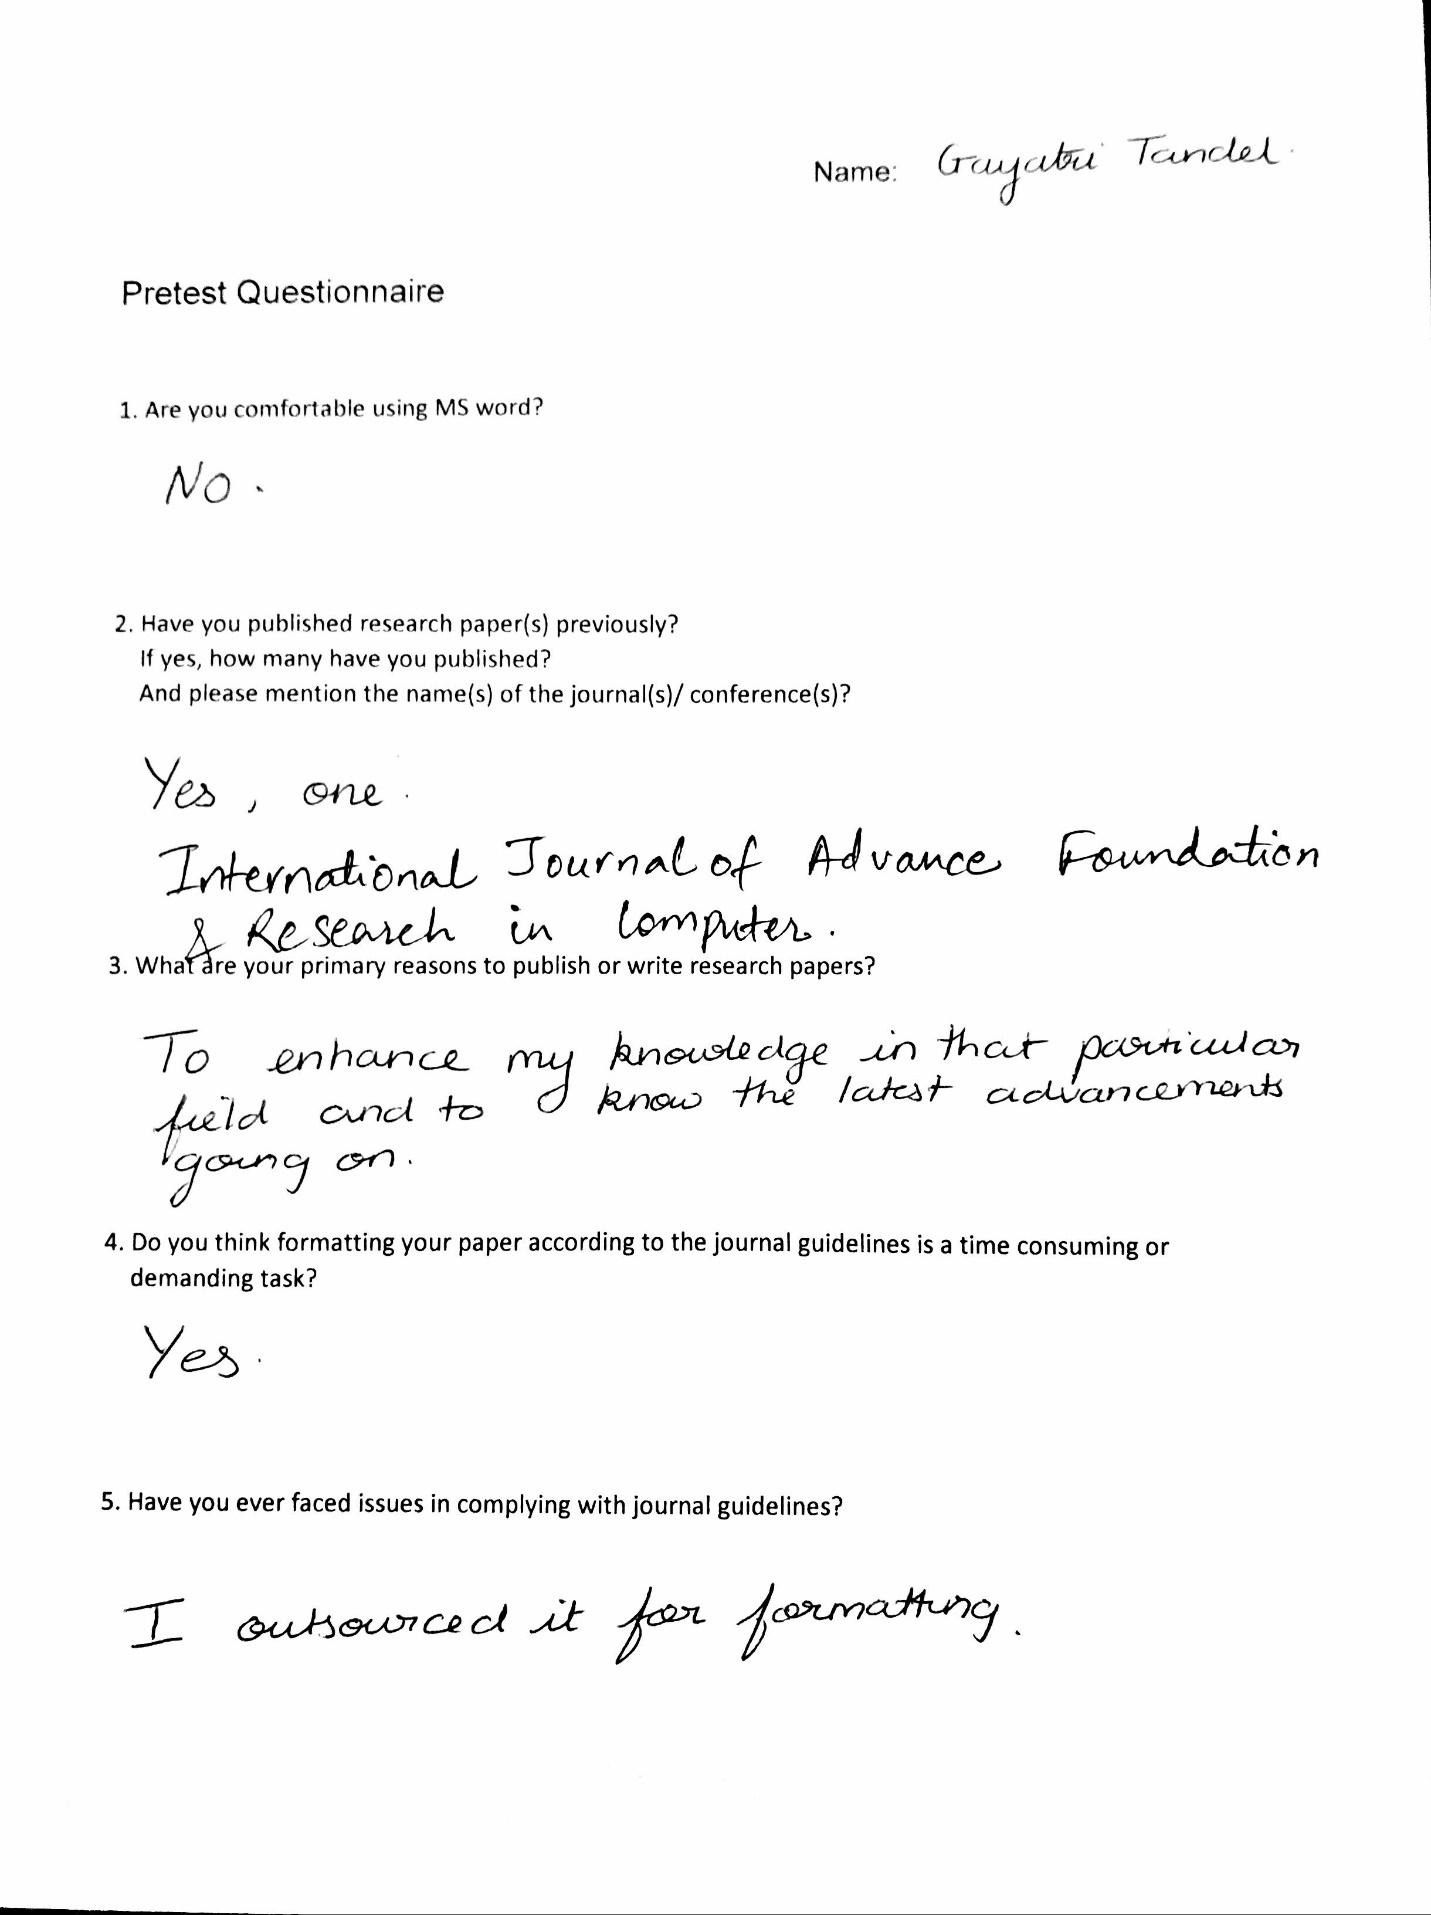 Name: Gayatri Tandel.
Pretest Questionnaire
1. Are you comfortable using MS word?
No.
2. Have you published research paper(s) previously?
If yes, how many have you published?
And please mention the name(s) of the journal(s)/ conference(s)?
Yes, one.
International Journal of Advance Foundation
& Research in Computer.
3. What are your primary reasons to publish or write research papers?
To enhance my knowledge in that particular
field and to know the latest advancements
going on.
4. Do you think formatting your paper according to the journal guidelines is a time consuming or
demanding task?
Yes.
5. Have you ever faced issues in complying with journal guidelines?
I outsourced it for formatting.